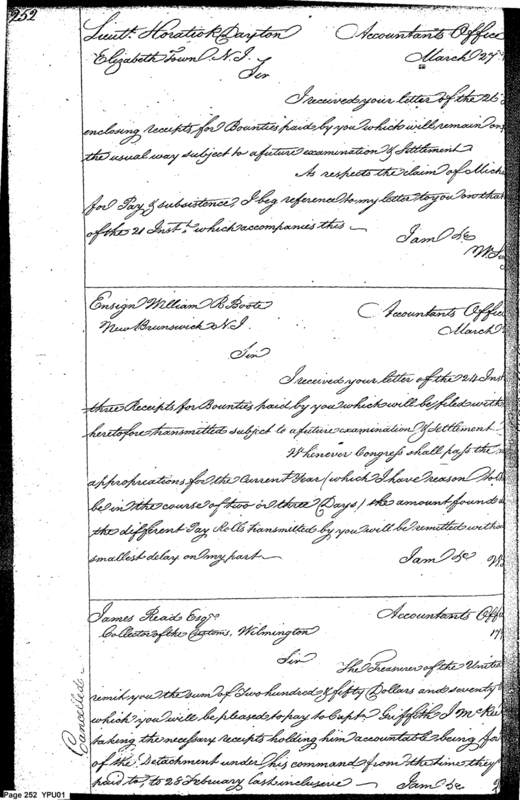 252
Lieut. Horatio R Dayton Accountants Office
Elizabeth Town N.J. March 27
Sir
I received your letter of the 25
enclosing receipts for Bounties paid by you which will remain on
the usual way subject to a future examination & Settlement
As respects the claim of Mich
for Pay & subsistence, I beg reference to my letter to you on that
of the 21 Inst. which accompanies this —
I am &c
W Sim
Ensign William R Boote Accountants Office
New Brunswick N.J. March
Sir
I received your letter of the 24 Inst
three Receipts for Bounties paid by you which will be filed with
heretofore transmitted subject to a future examination & Settlement
Whenever Congress shall pass the
appropriations for the Current Year (which I have reason to
be in the course of two or three Days) the amount found
the different Pay Rolls transmitted by you will be remitted witho
smallest delay on my part — I am &c
James Read Esqr. Accountants Offi
Collector of the Customs, Wilmington 179
Sir
The Treasurer of the United
remit you the sum of Two hundred & fifty Dollars and seventy
which you will be pleased to pay to Capt. Griffith J McRee
taking the necessary receipts holding him accountable being for
of the Detachment under his command from the time they
paid to, to 28 February last inclusive — I am &c
Cancelled
Page 252 YPU01